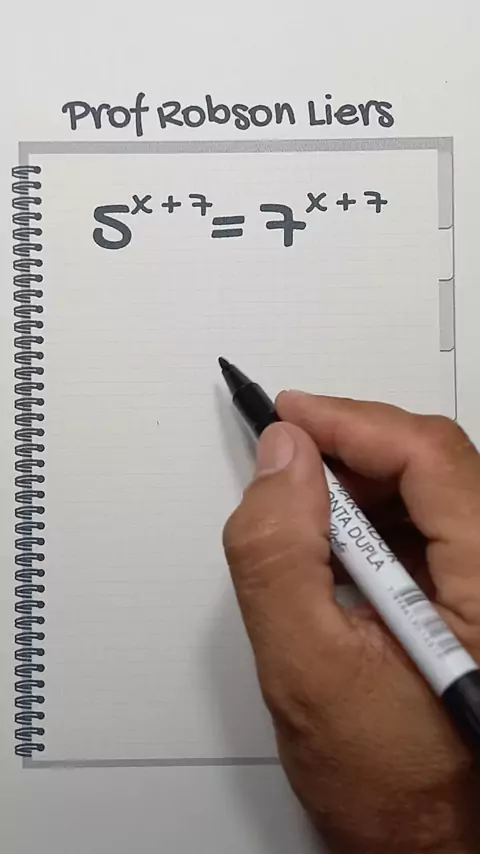 Prof Robson Liers
5^{x+7} = 7^{x+7}
MARCADOR
PONTA DUPLA